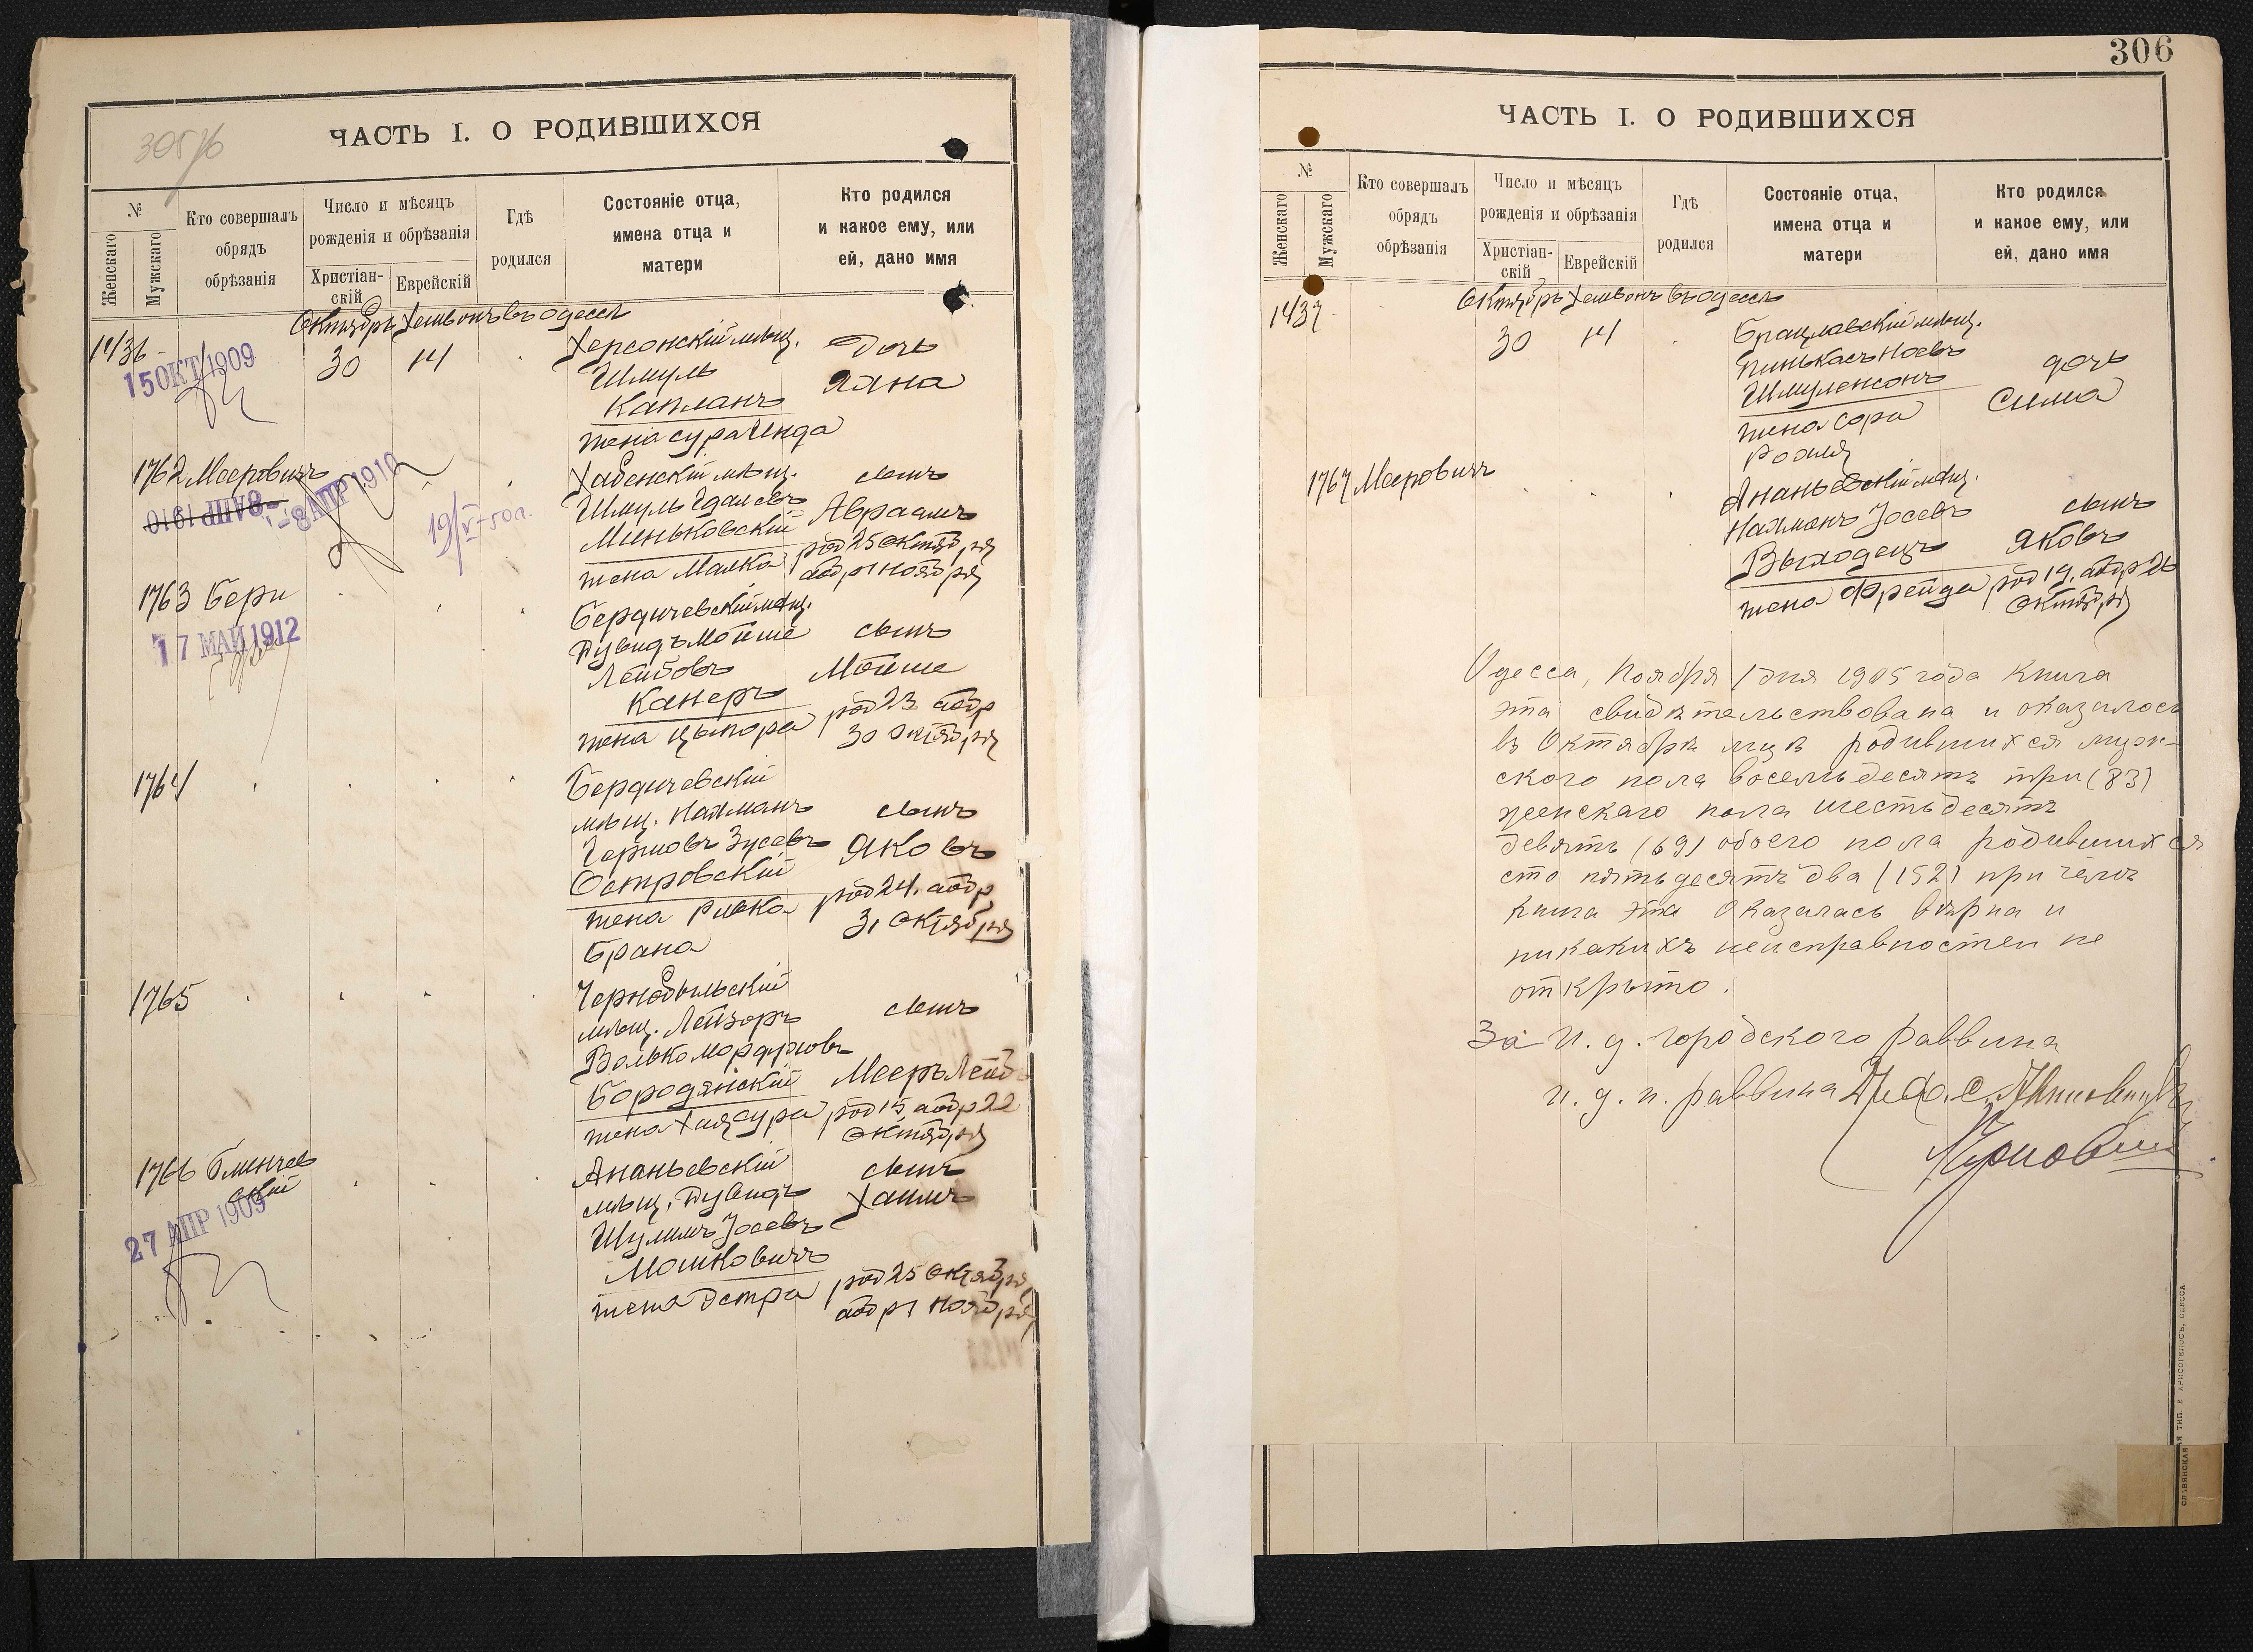 305 об
ЧАСТЬ I. О РОДИВШИХСЯ
№
Женскаго
Мужскаго
Кто совершалъ
обрядъ
обрѣзанія
Число и мѣсяцъ
рожденія и обрѣзанія
Христіан-
скій
Еврейскій
Гдѣ
родился
Состояніе отца,
имена отца и
матери
Кто родился
и какое ему, или
ей, дано имя
Октябрь Хешвонъ въ Одессѣ
1436
15 ОКТ 1909
30
14
Херсонскій мѣщ.
Шмуль
Капланъ
жена Сура Инда
Дочь
Яхна
1762 Мееровичъ
-8 АПР 1910
-8 АПР 1910
19/V-50
Хабенскій мѣщ.
Шмуль
Миньковскій
жена Малка
сынъ
Авраамъ
род 25 Октября
аобр 1 Ноября
1763 Бери
17 МАЙ 1912
Бердичевскій мѣщ.
Дувидъ Мойше
Лейбовъ
Канеръ
жена Ципора
сынъ
Мойше
род 23 аобр
30 Октября
1764
Бердичевскій
мѣщ. Нахманъ
Зусевъ
Островскій
жена Ривка
Брана
сынъ
Яковъ
род 24. аобр
31 Октября
1765
Чернобыльскій
мѣщ. Лейзоръ
Волько Мордуховъ
Бородянскій
жена Хая Сура
сынъ
Мееръ Лейбъ
род 15 аобр 22
Октября
1766 Блинчев
скій
27 АПР 1909
Ананьевскій
мѣщ. Дувидъ
Шулимъ Іосевъ
Мошковичъ
жена Эстра
сынъ
Хаимъ
род 25 Октября
аобр 1 Ноября
306
ЧАСТЬ I. О РОДИВШИХСЯ
№
Женскаго
Мужскаго
Кто совершалъ
обрядъ
обрѣзанія
Число и мѣсяцъ
рожденія и обрѣзанія
Христіан-
скій
Еврейскій
Гдѣ
родился
Состояніе отца,
имена отца и
матери
Кто родился
и какое ему, или
ей, дано имя
Октябрь Хешвонъ въ Одессѣ
1437
30
14
Брацлавскій мѣщ.
Пинькасъ Ноевъ
Шмуленсонъ
жена Сора
дочь
Сима
1767 Мееровичъ
Ананьевскій мѣщ.
Нахманъ Іосевъ
Выходецъ
жена Фрейда
сынъ
Яковъ
род 19. аобр 26
Октября
Одесса, Ноября 1 дня 1905 года Книга
эта свидѣтельствована и оказалось
въ Октябрѣ м-цѣ родившихся муж-
ского пола восемьдесятъ три (83)
женскаго пола шестьдесятъ
девять (69) обоего пола родившихся
сто пятьдесятъ два (152) при чемъ
книга эта оказалась вѣрна и
никакихъ неисправностей не
открыто.
За И. д. городского раввина
и. д. п. раввина
СЛАВЯНСКАЯ ТИП. Е. ХРИСОГЕЛОСЪ, ОДЕССА